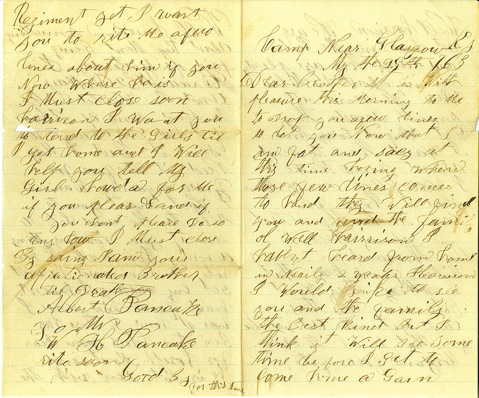 Camp Near Glasgow Ky
My the 19th 1863
Dear Brother it is with
pleasure this morning to
to drop you a few lines
to let you know that I
am fat and sasy at
this time hoping when
those few lines comes
to hand they Will find
you and and the famil
ol Well harrison I
havent heard from home
in nearly 2 weaks Harrison
I Would like to see
you and the family
the best kind but I
think it Will be some
time before I get to
come home a Gain
Regiment yet I want
you to rite me a few
lines about him if you
Now Where he is
I Must Close soon
harrison I Want you
to tend to the Girls till
I get home and I Will
help you tell My
Girl howda for me
if you pleas and if
you dont pleas to do so
any how I Must close
By saing I am your
affectionated Brother
un till Death
Albert Pancake
To Mr
W H Pancake
rite soon
Good By for this time